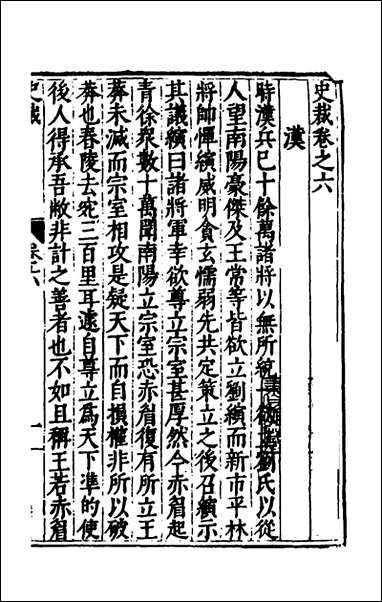 史裁卷之六
漢
時漢兵已十餘萬諸將以無所統一欲立劉氏以從
人望南陽豪傑及王常等皆欲立劉縯而新市平林
將帥憚縯威明貪玄懦弱先共定策立之後召縯示
其議縯曰諸將軍幸欲尊立宗室甚厚然今赤眉起
青徐衆數十萬聞南陽立宗室恐赤眉復有所立王
莽未滅而宗室相攻是疑天下而自損權非所以破
莽也舂陵去宛三百里耳遽自尊立爲天下準的使
後人得承吾敝非計之善者也不如且稱王若赤眉
史裁
卷之六
一